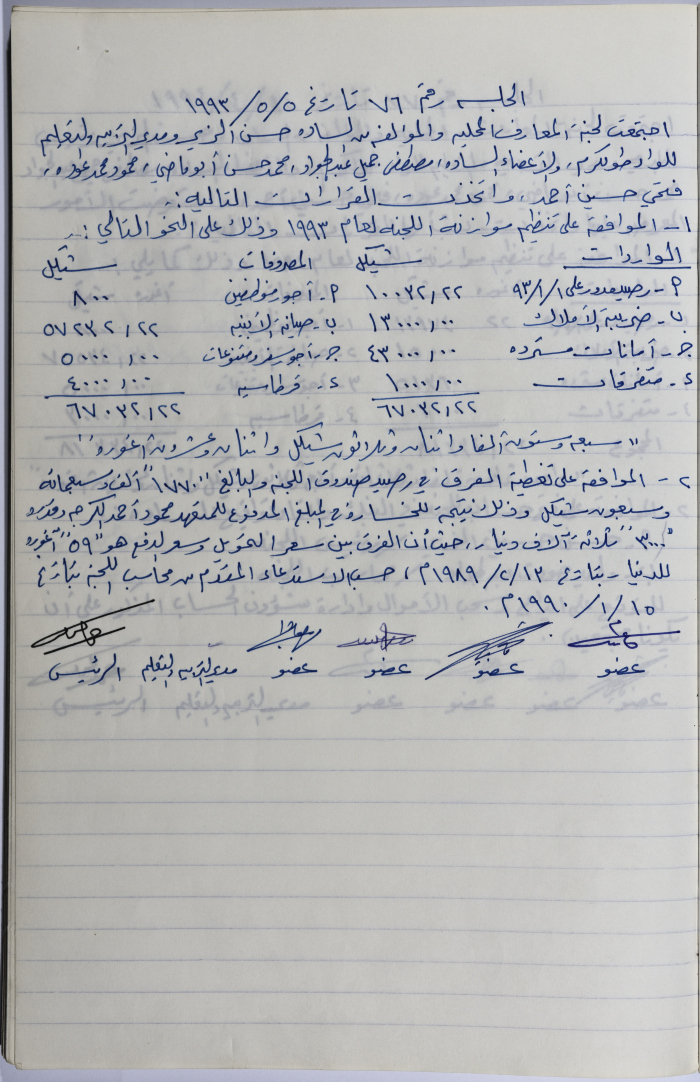 الجلسه رقم ٧٦ تاريخ ٥/٥/١٩٩٣
اجتمعت لجنة المعارف المحليه والمؤلفه من الساده حسن الزير ومدير التربيه والتعليم
للواء طولكرم، والأعضاء الساده، مصطفى جميل عبد الجواد، محمد حسن أبو ماضي، محمود محمد
فتحي حسين أحمد، واتخذت القرارات التاليه :-
١- الموافقة على تنظيم موازنة اللجنه لعام ١٩٩٣ وذلك على النحو التالي :-
الواردات شيكل المصروفات شيكل
٢- رصيد مدور على ٩٣/١/١ ١٠٠٣٢,٢٢ ٢- أجور موظفين ٨٠٠
ب- ضريبة الأملاك ١٣٠٠٠,٠٠ ب- صيانه الأبنيه ٥٧٢٣٢,٢٢
جـ- أمانات مسترده ٤٣٠٠٠,٠٠ جـ- أجور سفر ومتنوعات ٥٠٠٠,٠٠
د- متفرقات ١٠٠٠,٠٠ د- قرطاسيه ٤٠٠٠,٠٠
٦٧٠٣٢,٢٢ ٦٧٠٣٢,٢٢
"سبعه وستون الفا واثنان وثلاثون شيكل واثنان وعشرون اغوره"
٢- الموافقة على تغطية الفرق في رصيد صندوق اللجنه والبالغ "١٧٧٠" ألف وسبعمائه
وسبعون شيكل وذلك نتيجة للخساره في المبلغ المدفوع للمتعهد محمود أحمد الكرم وقدره
"٣٠٠٠" ثلاثة آلاف دينار، حيث أن الفرق بين سعر التحويل وسعر الدفع هو "٥٩" أغوره
للدينار بتاريخ ١٣/٢/١٩٨٩م، حسب الاستدعاء المقدم من محاسب اللجنه بتاريخ
١٥/١/١٩٩٠م.
عضو عضو عضو عضو مدير التربيه والتعليم الرئيس